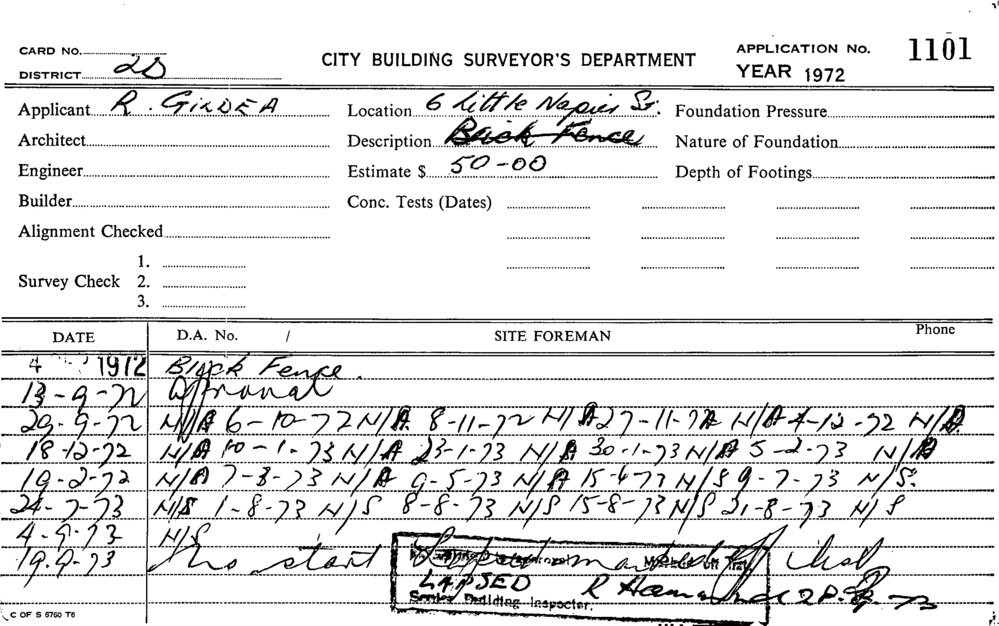 CARD NO.
DISTRICT 2D
CITY BUILDING SURVEYOR'S DEPARTMENT
APPLICATION No. 1101
YEAR 1972
Applicant R. GILDEA
Location 6 Little Napier St.
Foundation Pressure
Architect
Description Brick Fence
Nature of Foundation
Engineer
Estimate $ 50-00
Depth of Footings
Builder
Conc. Tests (Dates)
Alignment Checked
Survey Check 1.
2.
3.
DATE D.A. No. / SITE FOREMAN Phone
4 1972 Brick Fence.
13-9-72 Approval
29-9-72 N/A 6-10-72 N/A 8-11-72 N/A 27-11-72 N/A 4-12-72 N/A
18-12-72 N/A 10-1-73 N/A 23-1-73 N/A 30-1-73 N/A 5-2-73 N/A
19-2-73 N/A 7-3-73 N/A 9-5-73 N/A 15-6-73 N/S 9-7-73 N/S.
24-7-73 N/S 1-8-73 N/S 8-8-73 N/S 15-8-73 N/S 21-8-73 N/S
4-9-73 N/S
19.9.73 No start Lapsed mark off list
LAPSED R
Senior Building Inspector.
C OF S 5760 T6